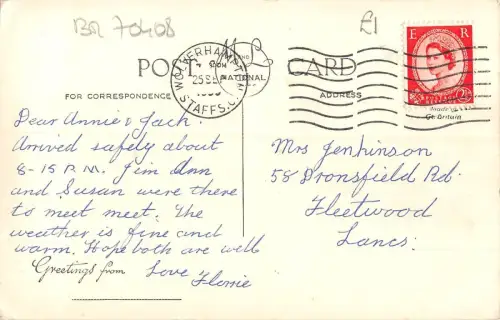 BR 70408
£1
E R
POST CARD
WOLVERHAMPTON
25 SEP
STAFFS.
NATIONAL
FOR CORRESPONDENCE
ADDRESS
Made in
Gt Britain
Dear Annie & Jack.
Arrived safely about
8-15 P.M. Jim Ann
and Susan were there
to meet meet. The
weather is fine and
warm. Hope both are well
Greetings from Love Florrie
Mrs Jenkinson
58 Bronsfield Rd.
Fleetwood
Lancs: